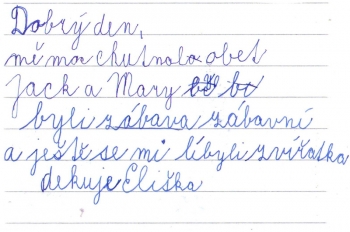 Dobrý den,
mě moc chutnalo obet
Jack a Mary
byli zábava zábavní
a ješte se mi líbyli zvířatka
dekuje Eliška